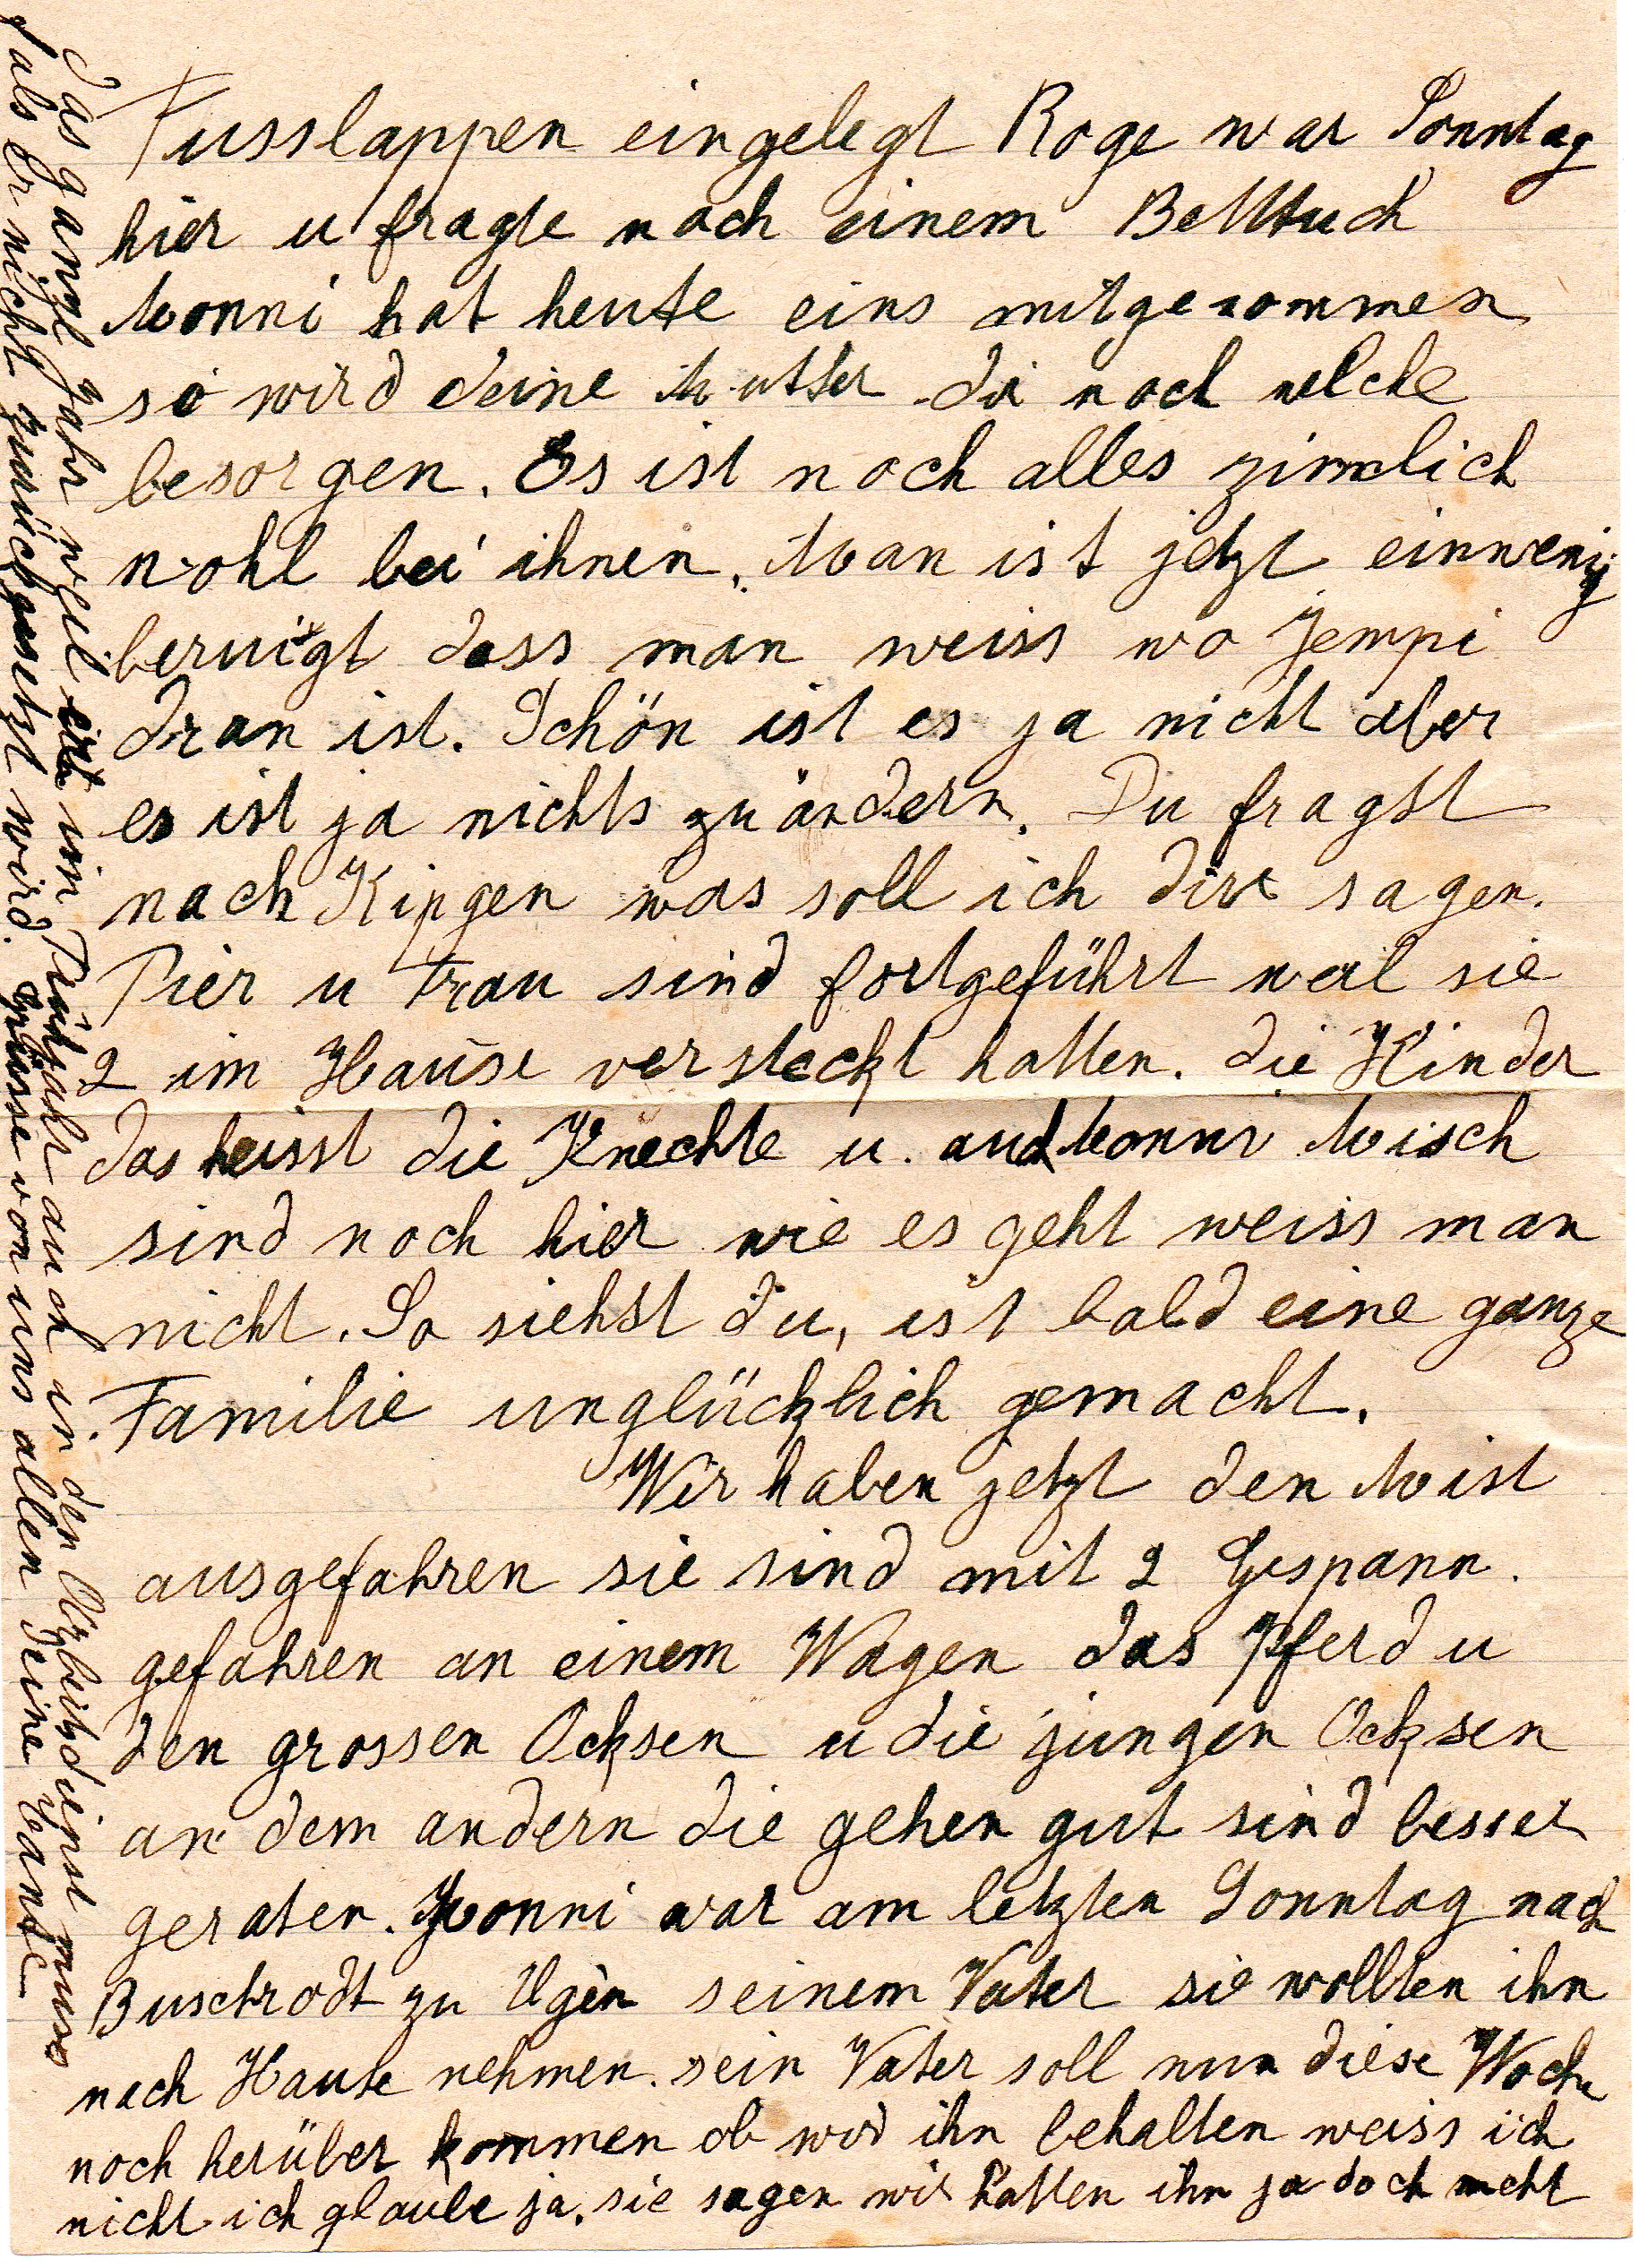 Fusslappen eingelegt Roge war Sonntag
hier u fragte nach einem Betttuch
Monni hat heute eins mitgenommen
so wird deine Mutter dir noch welche
besorgen. Es ist noch alles zimmlich
wohl bei ihnen. Man ist jetzt einwenig
beruigt dass man weiss wo Jempi
dran ist. Schön ist es ja nicht aber
es ist ja nichts zu ändern. Du fragst
nach Kipgen was soll ich dir sagen.
Pier u Frau sind fortgeführt weil sie
2 im Hause versteckt hatten. die Kinder
das heisst die Knechte u. auch Monni Misch
sind noch hier wie es geht weiss man
nicht. So siehst du, ist bald eine ganze
Familie unglücklich gemacht.
Wir haben jetzt den Mist
ausgefahren sie sind mit 2 Gespann.
gefahren an einem Wagen das Pferd u
den grossen Ocksen u die jungen Ocksen
an dem andern die gehen gut sind besser
geraten. Monni war am letzten Sonntag nach
Buschrodt zu Ugèn seinem Vater sie wollten ihn
nach Hause nehmen. sein Vater soll nun diese Woche
noch herüber kommen ob wir ihn behalten weiss ich
nicht ich glaube ja. sie sagen wir hatten ihn ja doch nicht
das ganze Jahr weil er im Frühjahr auch in den Arbeitzdienst muss
fals Er nicht zurückgesetzt wird. Grüsse von uns allen Deine Tante